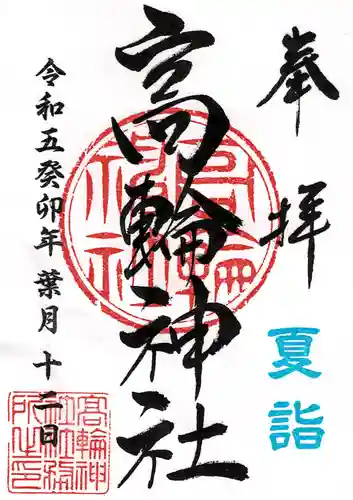 奉拝
夏詣
高輪神社
令和五癸卯年葉月十二日
高輪神社